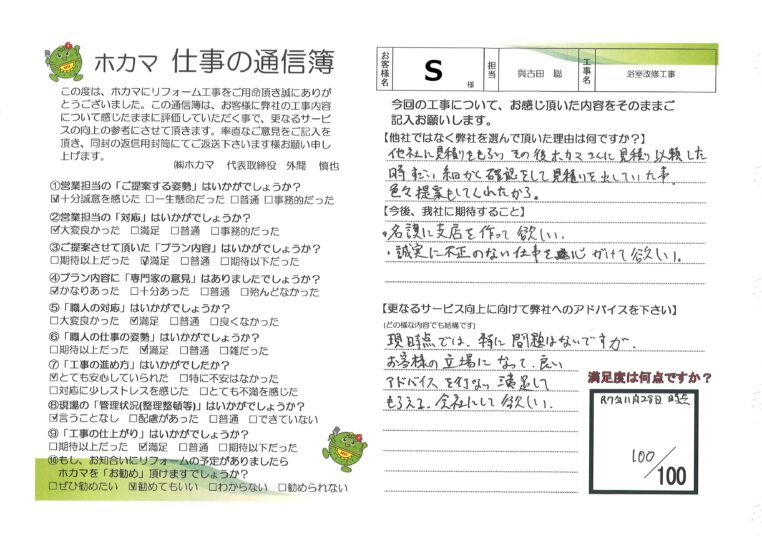 ホカマ 仕事の通信簿
この度は、ホカマにリフォーム工事をご用命頂き誠にありが
とうございました。この通信簿は、お客様に弊社の工事内容
について感じたままに評価していただく事で、更なるサービ
スの向上の参考にさせて頂きます。率直なご意見をご記入を
頂き、同封の返信用封筒にてご返送下さいます様お願い申し
上げます。
㈱ホカマ 代表取締役 外間 慎也
①営業担当の「ご提案する姿勢」はいかがでしょうか?
☑十分誠意を感じた □一生懸命だった □普通 □事務的だった
②営業担当の「対応」はいかがでしょうか?
☑大変良かった □満足 □普通 □事務的だった
③ご提案させて頂いた「プラン内容」はいかがでしょうか?
□期待以上だった ☑満足 □普通 □期待以下だった
④プラン内容に「専門家の意見」はありましたでしょうか?
☑かなりあった □十分あった □普通 □殆んどなかった
⑤「職人の対応」はいかがでしょうか?
□大変良かった ☑満足 □普通 □良くなかった
⑥「職人の仕事の姿勢」はいかがでしょうか?
□期待以上だった ☑満足 □普通 □雑だった
⑦「工事の進め方」はいかがでしたか?
☑とても安心していられた □特に不安はなかった
□対応に少しストレスを感じた □とても不満を感じた
⑧現場の「管理状況(整理整頓等)」はいかがでしょうか?
☑言うことなし □配慮があった □普通 □できていない
⑨「工事の仕上がり」はいかがでしょうか?
□期待以上だった ☑満足 □普通 □期待以下だった
⑩もし、お知合いにリフォームの予定がありましたら
ホカマを「お勧め」頂けますでしょうか?
□ぜひ勧めたい ☑勧めてもいい □わからない □勧められない
お客様名 S 様 担当 與古田 聡 工事名 浴室改修工事
今回の工事について、お感じ頂いた内容をそのままご
記入お願いします。
【他社ではなく弊社を選んで頂いた理由は何ですか?】
他社に見積りをもらい その後ホカマさんに見積り依頼した
時すごい細かく確認をして見積りを出していた事。
色々提案もしてくれたから。
【今後、我社に期待すること】
・名護に支店を作って欲しい。
・誠実に不正のない仕事を心がけて欲しい。
【更なるサービス向上に向けて弊社へのアドバイスを下さい】
(どの様な内容でも結構です)
現時点では、特に問題はないですが、
お客様の立場になって、良い
アドバイスを行ない 満足して
もらえる、会社にして欲しい.
満足度は何点ですか?
R7年11月28日 時点
100/100